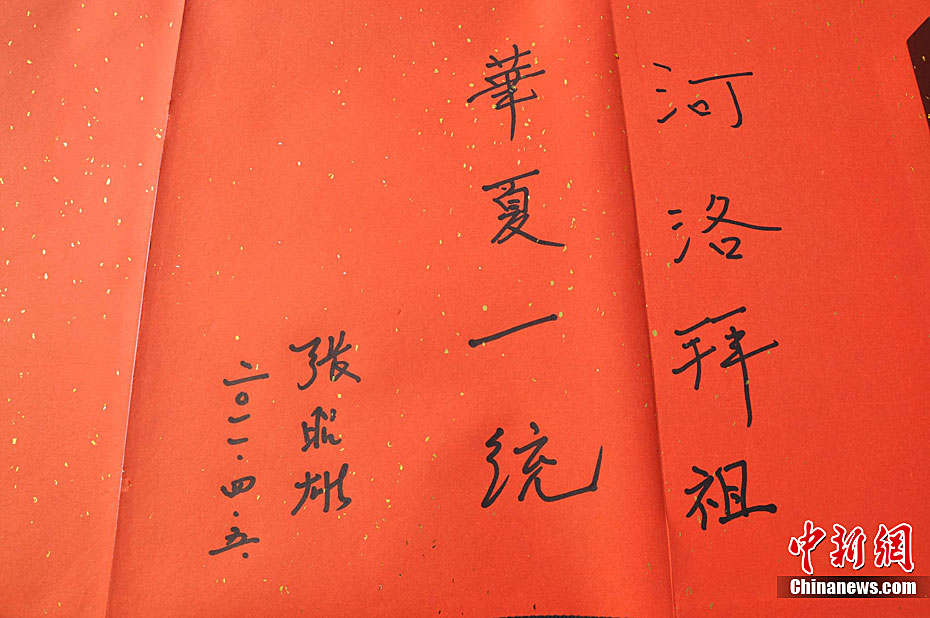 河洛拜祖
華夏一統
張昭雄
二〇一一.四.五.
中新網
Chinanews.com